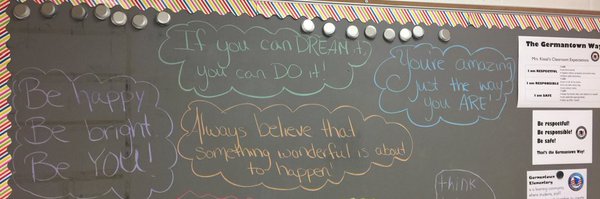 If you can DREAM it,
you can DO it!
You're amazing
just the way
you ARE!
Be happy!
Be bright.
Be YOU!
Always believe that
something wonderful is about
to happen!
think
The Germantown Way
Mrs. 
Classroom Expectations
I am RESPECTFUL
I am RESPONSIBLE
I am SAFE
Be respectful!
Be responsible!
Be safe!
That's the Germantown Way!
Germantown
Elementary